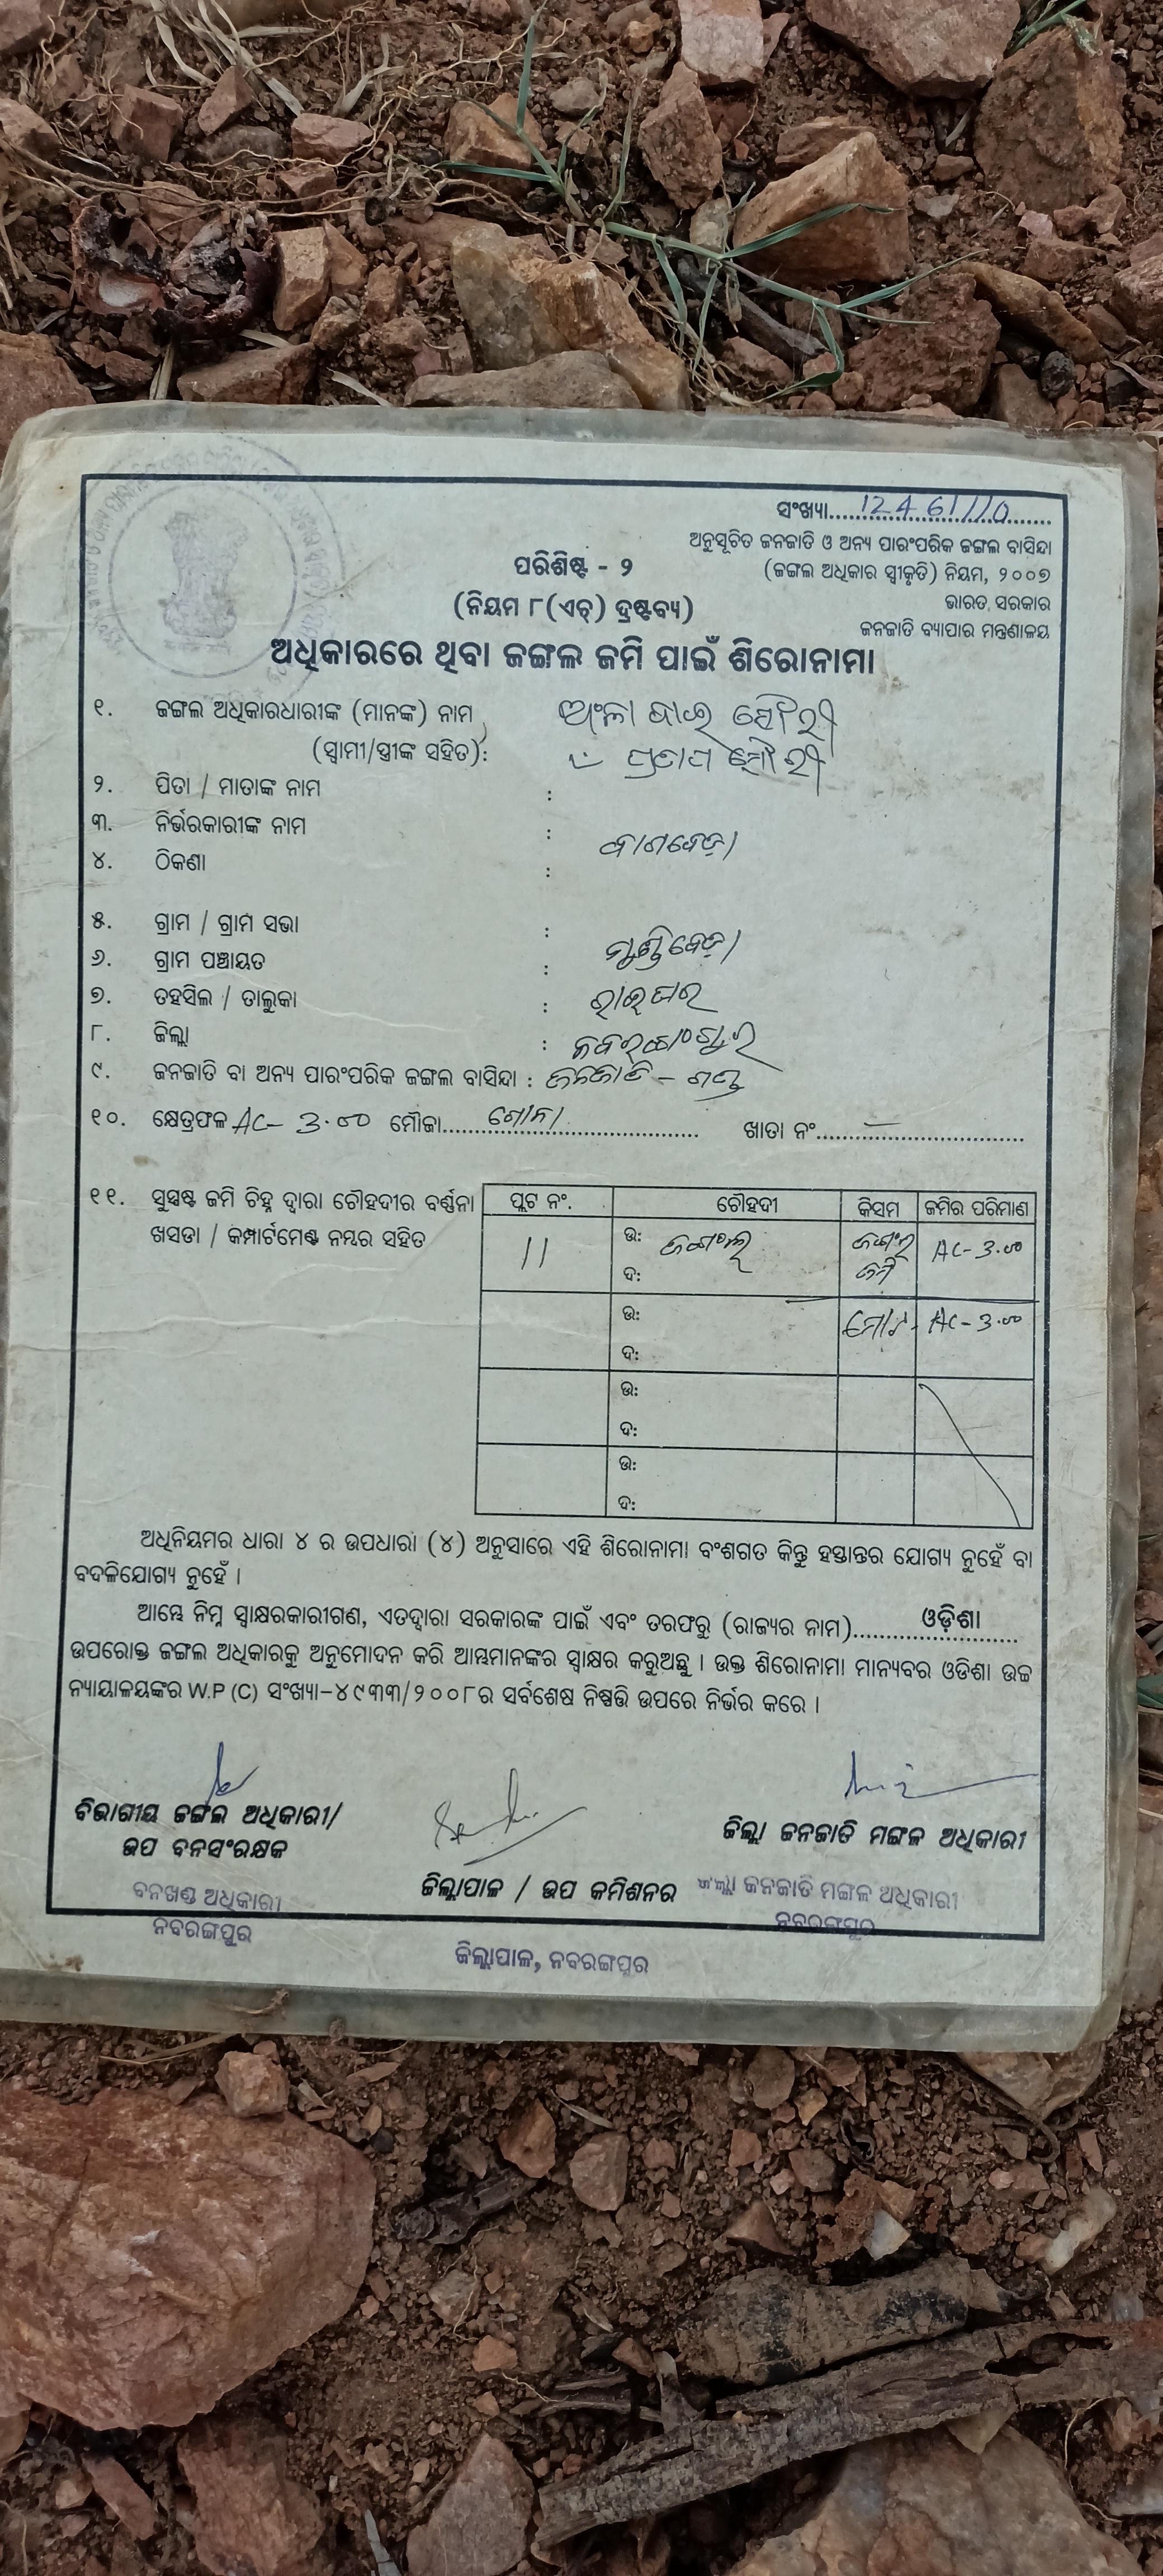 ସଂଖ୍ୟା..... 12461/10
ଅନୁସୂଚିତ ଜନଜାତି ଓ ଅନ୍ୟ ପାରଂପରିକ ଜଙ୍ଗଲ ବାସିନ୍ଦା
(ଜଙ୍ଗଲ ଅଧିକାର ସ୍ୱୀକୃତି) ନିୟମ, ୨୦୦୭
ଭାରତ ସରକାର
ଜନଜାତି ବ୍ୟାପାର ମନ୍ତ୍ରଣାଳୟ
ପରିଶିଷ୍ଟ - ୨
(ନିୟମ ୮(ଏଚ୍) ଦ୍ରଷ୍ଟବ୍ୟ)
ଅଧିକାରରେ ଥିବା ଜଙ୍ଗଲ ଜମି ପାଇଁ ଶିରୋନାମା
୧. ଜଙ୍ଗଲ ଅଧିକାରଧାରୀଙ୍କ (ମାନଙ୍କ) ନାମ
(ସ୍ୱାମୀ/ସ୍ତ୍ରୀଙ୍କ ସହିତ):
୨. ପିତା / ମାତାଙ୍କ ନାମ :
୩. ନିର୍ଭରକାରୀଙ୍କ ନାମ :
୪. ଠିକଣା :
୫. ଗ୍ରାମ / ଗ୍ରାମ ସଭା :
୬. ଗ୍ରାମ ପଞ୍ଚାୟତ : ମୁଣ୍ଡିବେଡ଼ା
୭. ତହସିଲ / ତାଲୁକା : ରାଇଘର
୮. ଜିଲ୍ଲା : ନବରଙ୍ଗପୁର
୯. ଜନଜାତି ବା ଅନ୍ୟ ପାରଂପରିକ ଜଙ୍ଗଲ ବାସିନ୍ଦା : ଜନଜାତି - ଗଣ୍ଡ
୧୦. କ୍ଷେତ୍ରଫଳ AC- 3.00 ମୌଜା..... ଖାତା ନଂ..... –
୧୧. ସୁସ୍ପଷ୍ଟ ଜମି ଚିହ୍ନ ଦ୍ୱାରା ଚୌହଦୀର ବର୍ଣ୍ଣନା
ଖସଡା / କମ୍ପାର୍ଟମେଣ୍ଟ ନମ୍ବର ସହିତ
ପ୍ଲଟ ନଂ. ଚୌହଦୀ କିସମ ଜମିର ପରିମାଣ
11 ଉ: ଜଙ୍ଗଲ ଜଙ୍ଗଲ AC- 3.00
ଦ: ଜମି
ଉ: ମୋଟ- AC- 3.00
ଦ:
ଉ:
ଦ:
ଉ:
ଦ:
ଅଧିନିୟମର ଧାରା ୪ ର ଉପଧାରା (୪) ଅନୁସାରେ ଏହି ଶିରୋନାମା ବଂଶଗତ କିନ୍ତୁ ହସ୍ତାନ୍ତର ଯୋଗ୍ୟ ନୁହେଁ ବା
ବଦଳିଯୋଗ୍ୟ ନୁହେଁ ।
ଆମ୍ଭେ ନିମ୍ନ ସ୍ୱାକ୍ଷରକାରୀଗଣ, ଏତଦ୍ୱାରା ସରକାରଙ୍କ ପାଇଁ ଏବଂ ତରଫରୁ (ରାଜ୍ୟର ନାମ)..... ଓଡ଼ିଶା
ଉପରୋକ୍ତ ଜଙ୍ଗଲ ଅଧିକାରକୁ ଅନୁମୋଦନ କରି ଆମ୍ଭମାନଙ୍କର ସ୍ୱାକ୍ଷର କରୁଅଛୁ । ଉକ୍ତ ଶିରୋନାମା ମାନ୍ୟବର ଓଡିଶା ଉଚ୍ଚ
ନ୍ୟାୟାଳୟଙ୍କର W.P (C) ସଂଖ୍ୟା-୪୯୩୩/୨୦୦୮ର ସର୍ବଶେଷ ନିଷ୍ପତ୍ତି ଉପରେ ନିର୍ଭର କରେ ।
ବିଭାଗୀୟ ଜଙ୍ଗଲ ଅଧିକାରୀ/
ଉପ ବନସଂରକ୍ଷକ
ଜିଲ୍ଲାପାଳ / ଉପ କମିଶନର
ଜିଲ୍ଲା ଜନଜାତି ମଙ୍ଗଳ ଅଧିକାରୀ
ବନଖଣ୍ଡ ଅଧିକାରୀ
ନବରଙ୍ଗପୁର
ଜିଲ୍ଲା ଜନଜାତି ମଙ୍ଗଳ ଅଧିକାରୀ
ନବରଙ୍ଗପୁର
ଜିଲ୍ଲାପାଳ, ନବରଙ୍ଗପୁର